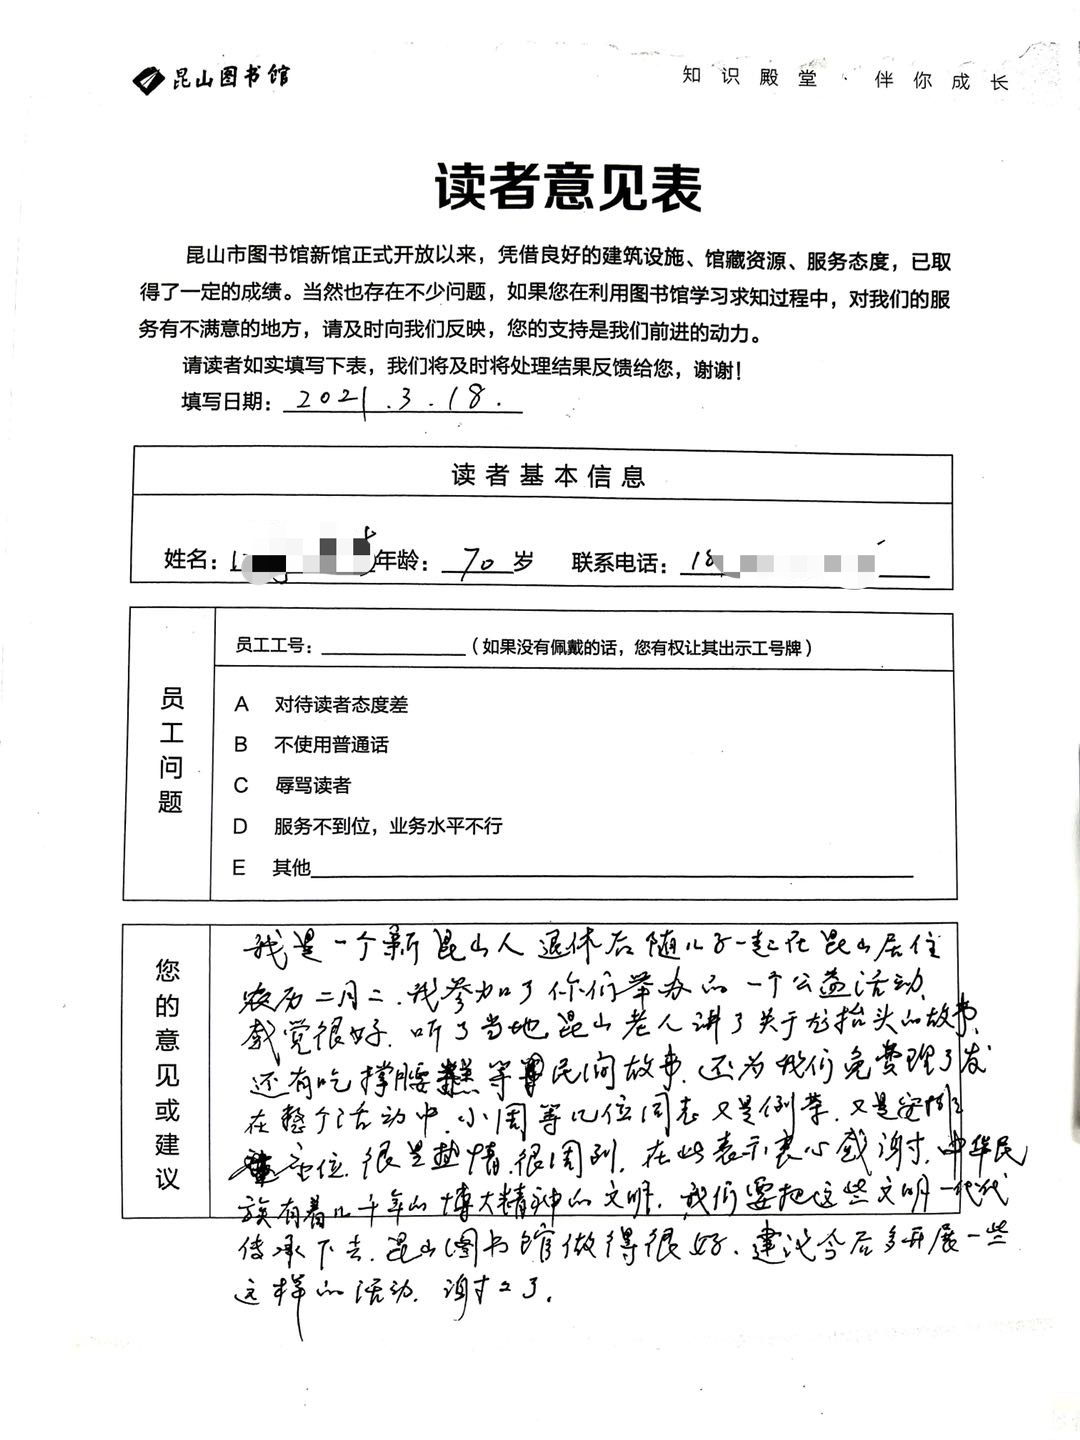 昆山图书馆
知识殿堂·伴你成长
读者意见表
昆山市图书馆新馆正式开放以来，凭借良好的建筑设施、馆藏资源、服务态度，已取
得了一定的成绩。当然也存在不少问题，如果您在利用图书馆学习求知过程中，对我们的服
务有不满意的地方，请及时向我们反映，您的支持是我们前进的动力。
请读者如实填写下表，我们将及时将处理结果反馈给您，谢谢！
填写日期：2021.3.18.
读者基本信息
姓名： 年龄：70岁 联系电话：18
员工问题
员工工号：（如果没有佩戴的话，您有权让其出示工号牌）
A 对待读者态度差
B 不使用普通话
C 辱骂读者
D 服务不到位，业务水平不行
E 其他
您的意见或建议
我是一个新昆山人退休后随儿子一起在昆山居住
农历二月二.我参加了你们举办的一个公益活动.
感觉很好.听了当地昆山老人讲了关于龙抬头的故事.
还有吃撑腰糕等民间故事.还为我们免费理了发
在整个活动中.小周等几位同志又是倒茶.又是安排
座位.很是热情.很周到.在此表示衷心感谢.中华民
族有着几千年的博大精神的文明.我们要把这些文明一代代
传承下去.昆山图书馆做得很好.建议今后多开展一些
这样的活动.谢谢了.